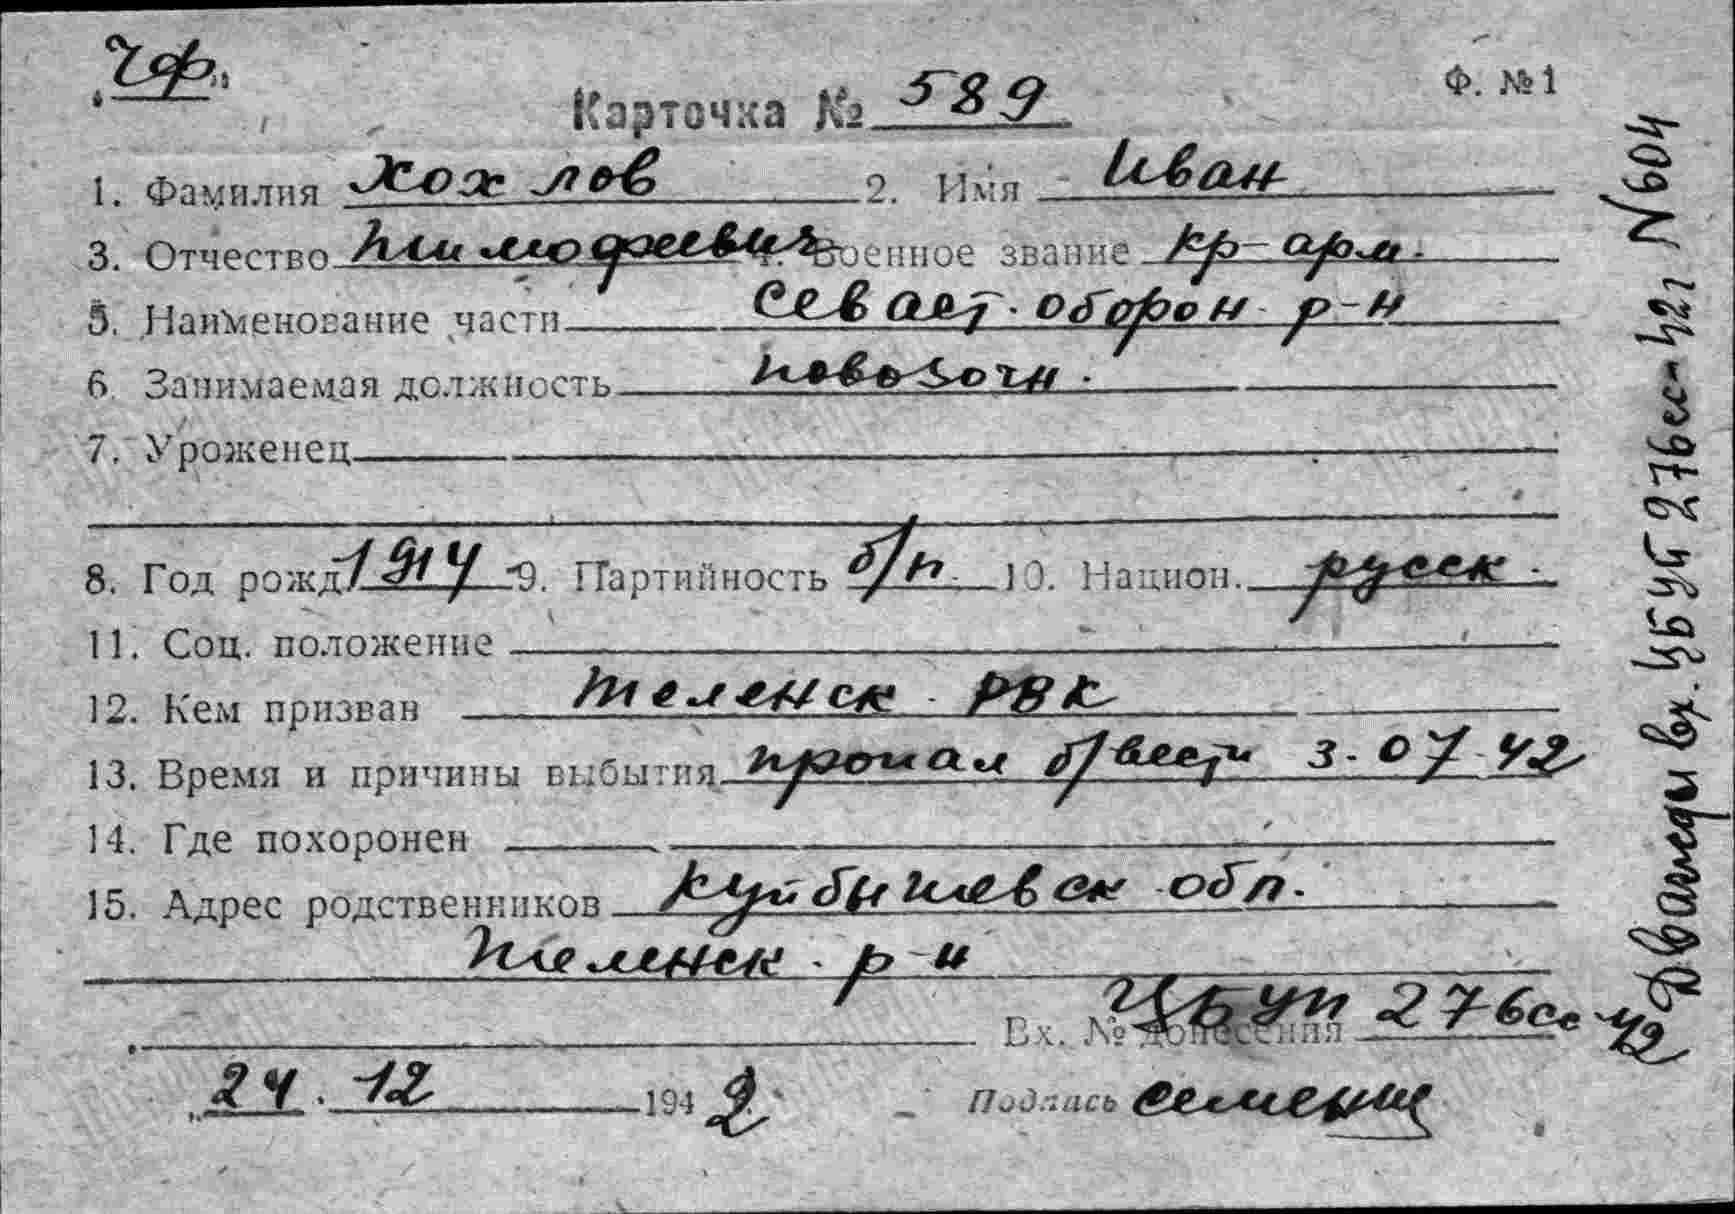 „ЧФ"
Ф. №1
Карточка № 589
1. Фамилия Хохлов 2. Имя Иван
3. Отчество Тимофеевич 4. Военное звание кр-арм.
5. Наименование части Севаст. оборон. р-н
6. Занимаемая должность повозочн.
7. Уроженец
8. Год рожд. 1914 9. Партийность б/п. 10. Национ. русск.
11. Соц. положение
12. Кем призван Теленск. РВК
13. Время и причины выбытия пропал б/вести 3-07-42
14. Где похоронен
15. Адрес родственников Куйбышевск обл.
Теленск. р-н
Вх. № донесения ЦБУП 276сс-42
„24. 12 1942
Подпись
вх. ЦБУП 276сс-42г N604